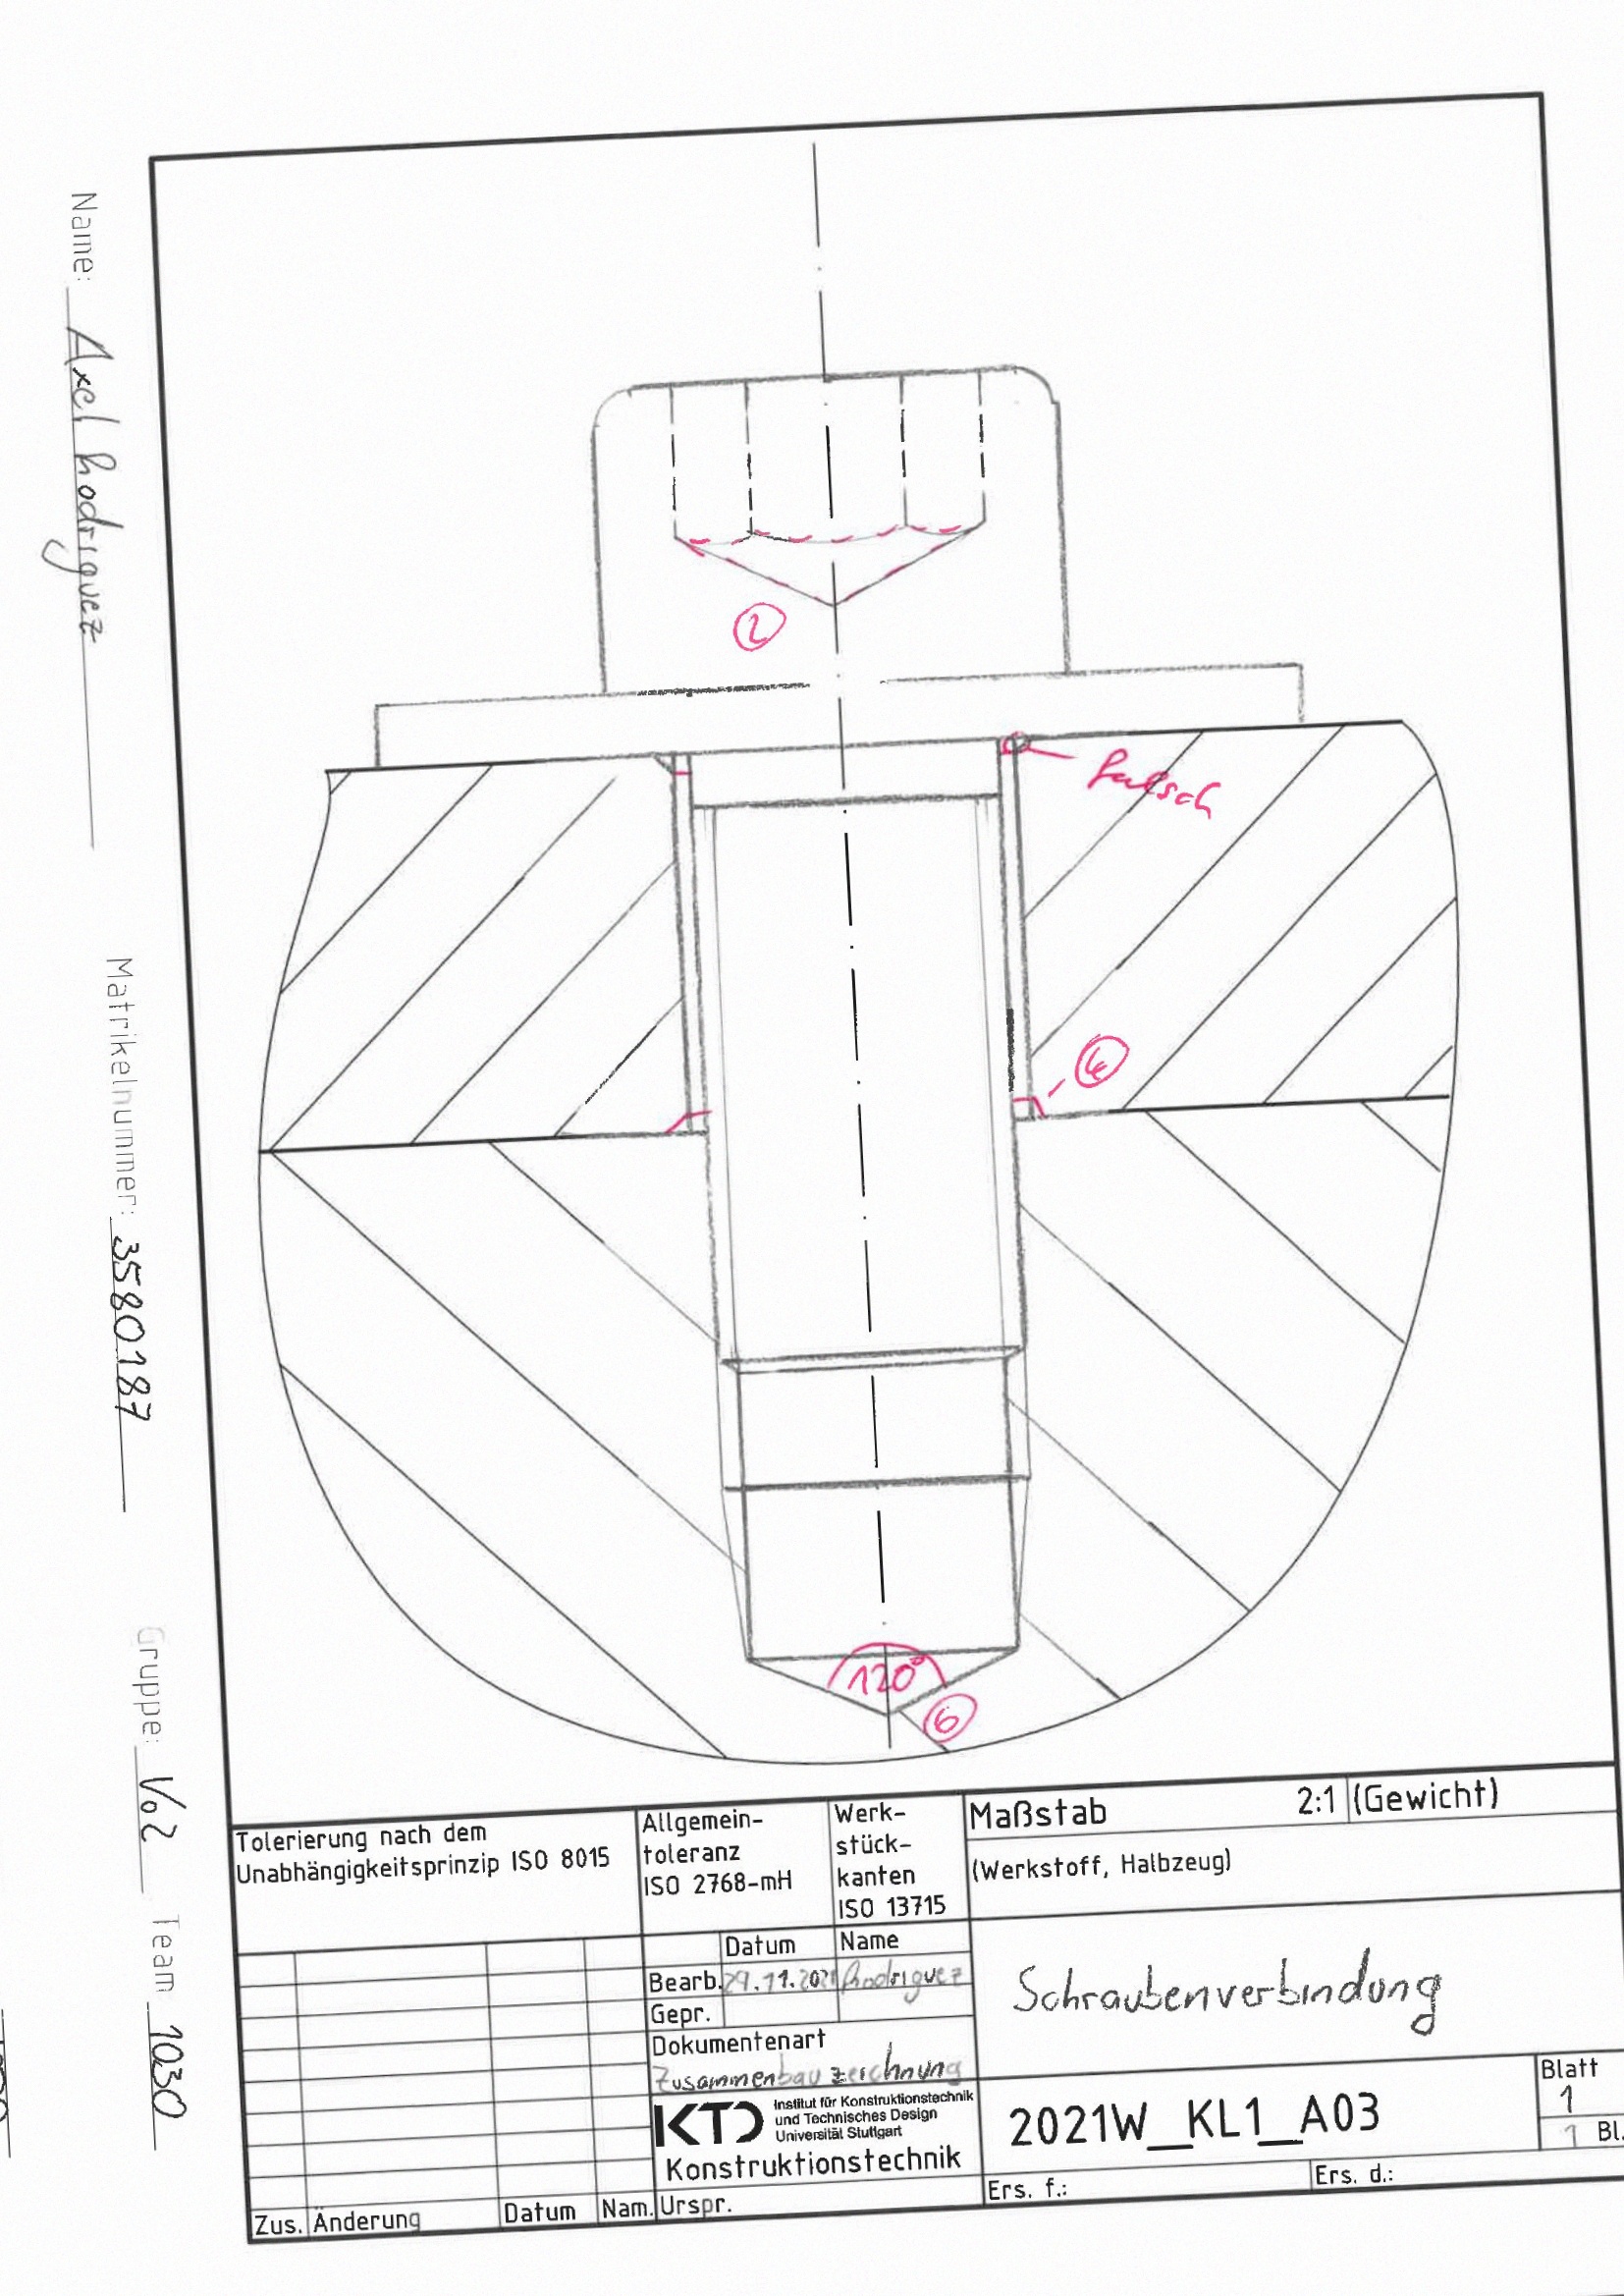 Name: Axel Rodriguez
Matrikelnummer: 3580187
Gruppe: V02 Team 1030
2
falsch
120°
6
Tolerierung nach dem
Unabhängigkeitsprinzip ISO 8015
Allgemein-
toleranz
ISO 2768-mH
Werk-
stück-
kanten
ISO 13715
Maßstab 2:1 (Gewicht)
(Werkstoff, Halbzeug)
Datum Name
Bearb. 29.11.2021 Rodriguez
Gepr.
Dokumentenart
Zusammenbauzeichnung
Schraubenverbindung
KTD
Institut für Konstruktionstechnik
und Technisches Design
Universität Stuttgart
Konstruktionstechnik
2021W_KL1_A03
Blatt
1
1 Bl.
Zus. Änderung Datum Nam. Urspr.
Ers. f.: Ers. d.: